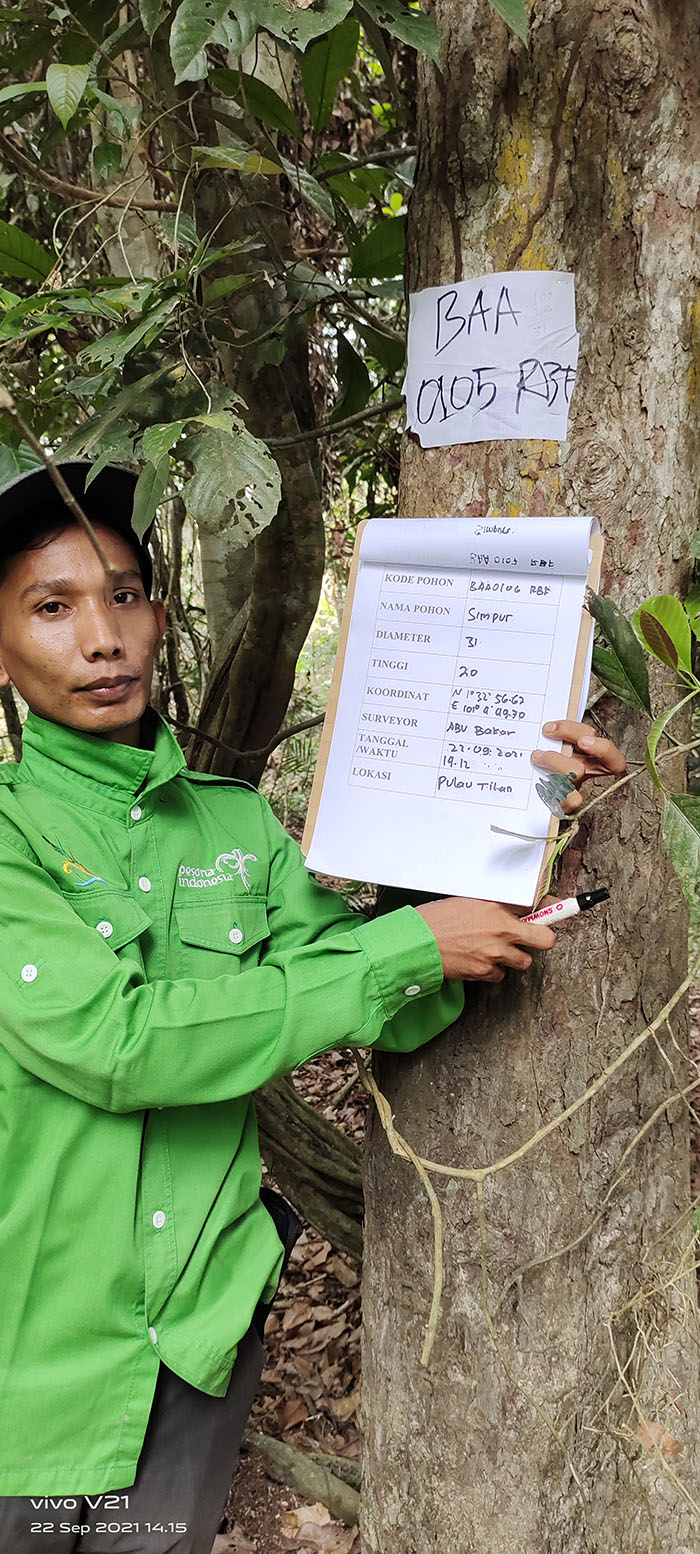 BAA
0105 RBF
BAA 0105 RBF
KODE POHON BAA0106 RBF
NAMA POHON Simpur
DIAMETER 31
TINGGI 20
KOORDINAT N 1° 32' 56.62
E 101° 4' 49.70
SURVEYOR ABU Bakar
TANGGAL 22.09.2021
/WAKTU 19.12
LOKASI Pulau Tilan
pesona
indonesia
SNOWMAN
vivo V21
22 Sep 2021 14.15